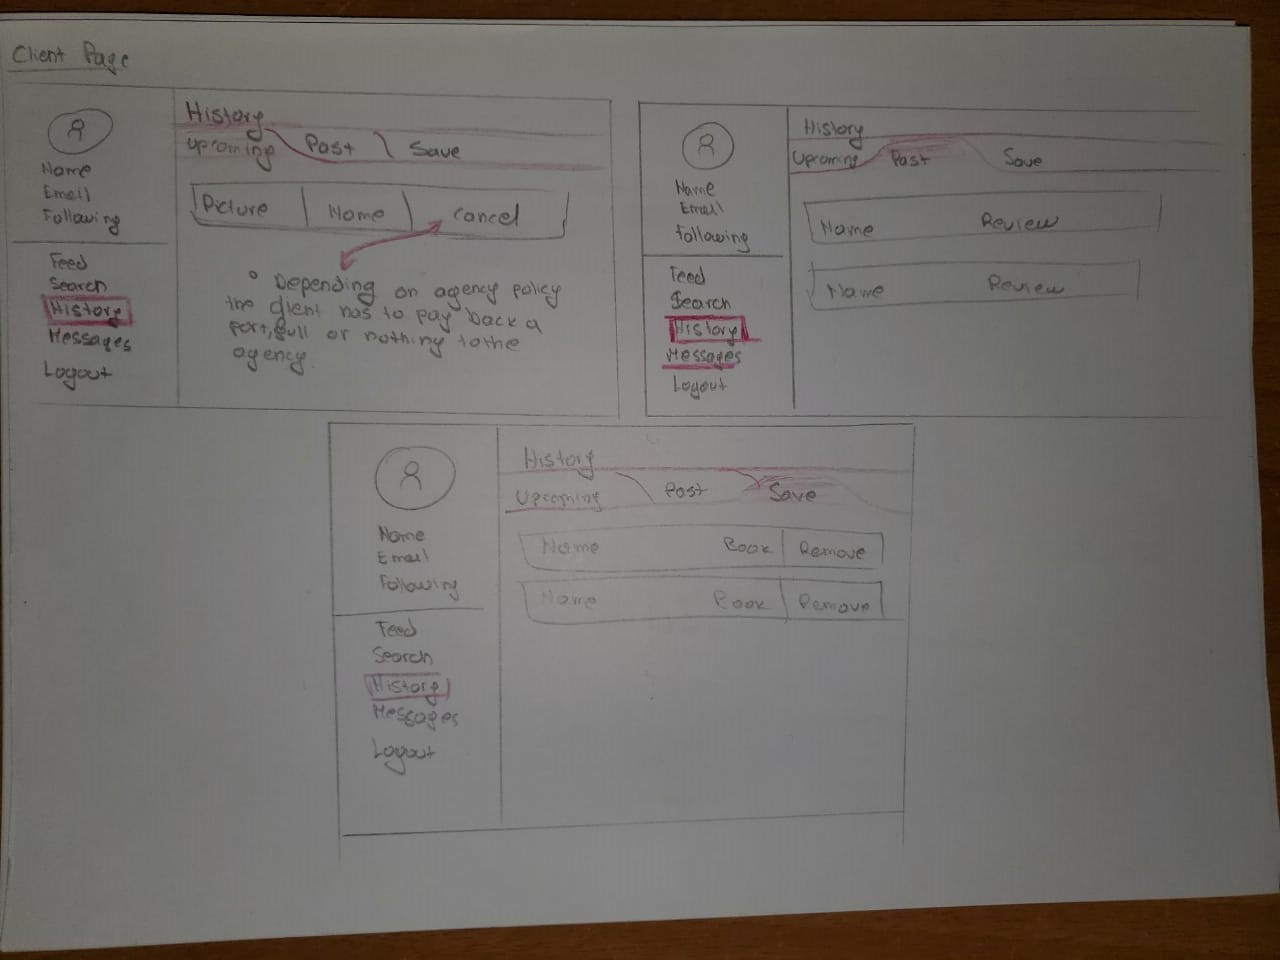 Client Page
Name
Email
Following
Feed
Search
History
Messages
Logout
History
Upcoming Past Save
Picture Name Cancel
Depending on agency policy
the client has to pay back a
part, full or nothing to the
agency.
Name
Email
Following
Feed
Search
History
Messages
Logout
History
Upcoming Past Save
Name Review
Name Review
Name
Email
Following
Feed
Search
History
Messages
Logout
History
Upcoming Past Save
Name Book Remove
Name Book Remove